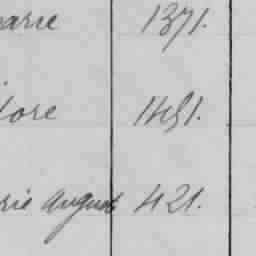 arie 1371.
dore 1451.
rie August 421.